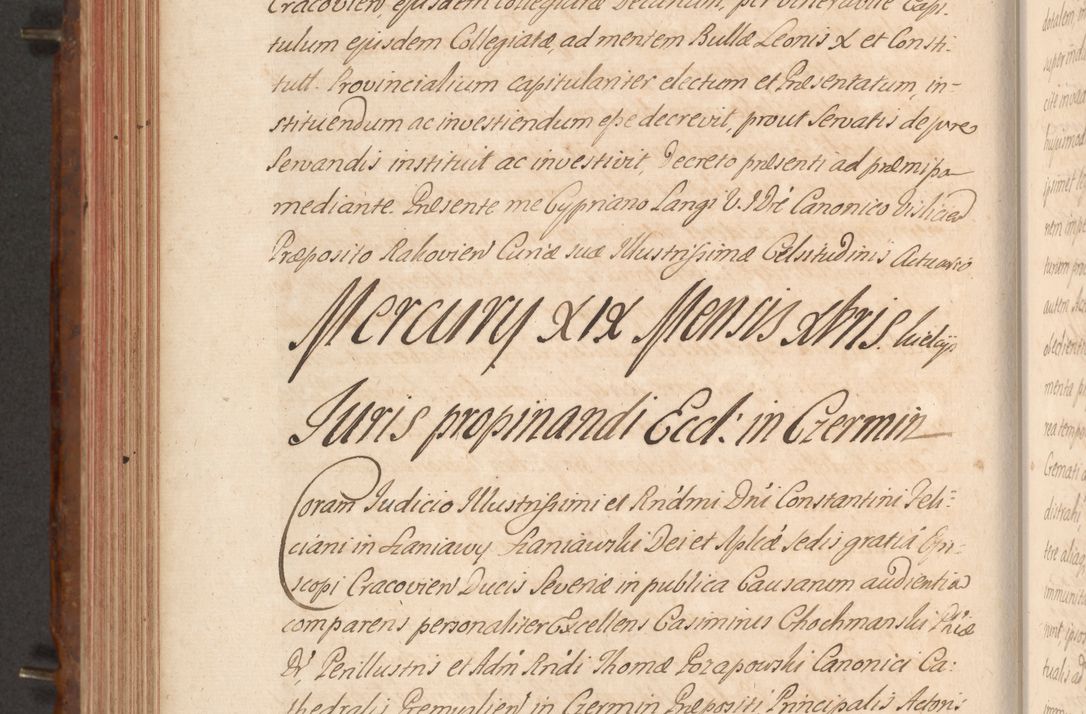 Cracovien ejusdem Collegiatæ Decanum, per Venerabile Capi-
tulum ejusdem Collegiatæ, ad mentem Bullæ Leonis X et Consti-
tutt. Provincialium capitulariter electum et Præsentatum, in-
stituendum ac investiendum esse decrevit, prout Servatis de jure
Servandis instituit ac investivit, Decreto præsenti ad præmissa
mediante. Præsente me Cypriano Langi V. I Dre Canonico Vislicien
Præposito Rakovien Curiæ suæ Illustrissimæ Celsitudinis Actuario
Mercury XIX Mensis Xbris.
Juris propinandi Eccl: in Czermin
Coram Judicio Illustrissimi et Rndmi Dni Constantini Feli-
ciani in Szaniawy Szaniawski Dei et Aplicæ Sedis gratiâ Epi-
scopi Cracovien Ducis Severiæ in publica Causarum audientia
comparens personaliter Excellens Casimirus Chochmanski
Perillustris et Adm Rndi Thomæ Pozapowski Canonici Ca:
thedralis Premyslien in Czermin Præpositi Principalis Actoris